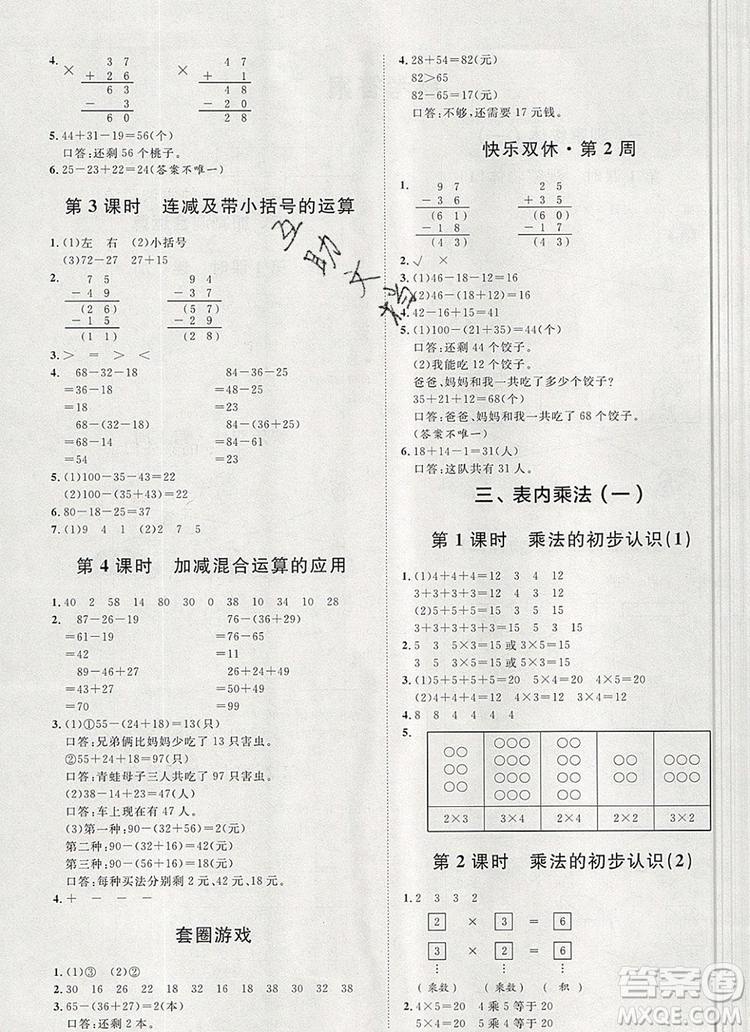 4. × 3 7 × 1 6
+ 2 6 + 3 2
6 3 4 8
- 3 - 2 4
6 0 2 4
5. 44+31-19=56(个)
口答:还剩 56 个桃子。
6. 25-23+22=24(答案不唯一)
第 3 课时 连减及带小括号的运算
1. (1)左 右 (2)小括号
(3)72-27 27+15
2. 7 5 9 4
- 4 9 - 3 7
(2 6) (5 7)
- 1 5 - 2 9
(1 1) (2 8)
3. > = > <
4. 68-32-18 84-36-25
=36-18 =48-25
=18 =23
68-(32-18) 84-(36-25)
=68-14 =84-11
=54 =73
5. (1)100-35-43=22
(2)100-(35+43)=22
6. 80-18-25=37
7. (1)9 4 1 (2)9 7 5
第 4 课时 加减混合运算的应用
1. 40 2 58 14 80 0 20 30
2. 87-26-19 76-(39-28)
=61-19 =76-11
=42 =65
89-46+27 58-(18+29)
=43+27 =58-47
=70 =11
3. (1)①55-(24+18)=13(只)
口答:兄弟俩比妈妈少吃 13 只害虫。
②55+24+18=97(只)
口答:青蛙母子三人共吃了 97 只害虫。
(2)38-14+23=47(人)
口答:车上现在有 47 人。
(3)第一种:90-(32+56)=2(元)
第二种:90-(32+16)=42(元)
第三种:90-(56+16)=18(元)
口答:每种买法分别剩 2 元、42 元、18 元。
4. + - - -
套圈游戏
1. (1)③ (2)②
2. 30 16 22 18 32 18 16 30 32 38
3. 65-(34+29)=2(本)
口答:还剩 2 本。
4. 28+54=82(元)
82>65
82-65=17(元)
口答:不够,还需要 17 元钱。
快乐双休·第 2 周
1. 9 7 9 0
- 3 6 - 2 9
(6 1) (6 1)
- 1 8 - 1 8
(4 3) (4 3)
2. √ ×
3. (1)46-18-12=16
(2)46-(18-12)=40
4. 42-16+15=41
5. (1)100-(21+35)=44(个)
口答:还剩 44 个饺子。
(2)我能吃 12 个饺子。
爸爸、妈妈和我一共吃了多少个饺子?
35+21+12=68(个)
口答:爸爸、妈妈和我一共吃了 68 个饺子。
(答案不唯一)
6. 14+18-1=31(人)
口答:这队共有 31 人。
三、表内乘法(一)
第 1 课时 乘法的初步认识(1)
1. (1)4+4+4=12 3 4 12
3+3+3+3=12 4 3 12
(2)5+5+5=15 3 5 15
3+3+3+3+3=15 5 3 15
2. 5 3 5×3=15 或 3×5=15
3. (1)5+5+5+5=20 4×5=20
(2)4+4+4+4+4=20 5×4=20
4. 8 8 4 4 4 4
5.
2×3 3×4 4×2 2×2 3×2
第 2 课时 乘法的初步认识(2)
1. 2 3 3 2
2 × 3 = 6
3 × 2 = 6
(乘数) (乘数) (积)
2. 4×5=20 4 乘 5 等于 20
5×4=20 5 乘 4 等于 20
互助文档
答案圈
MXQE.COM